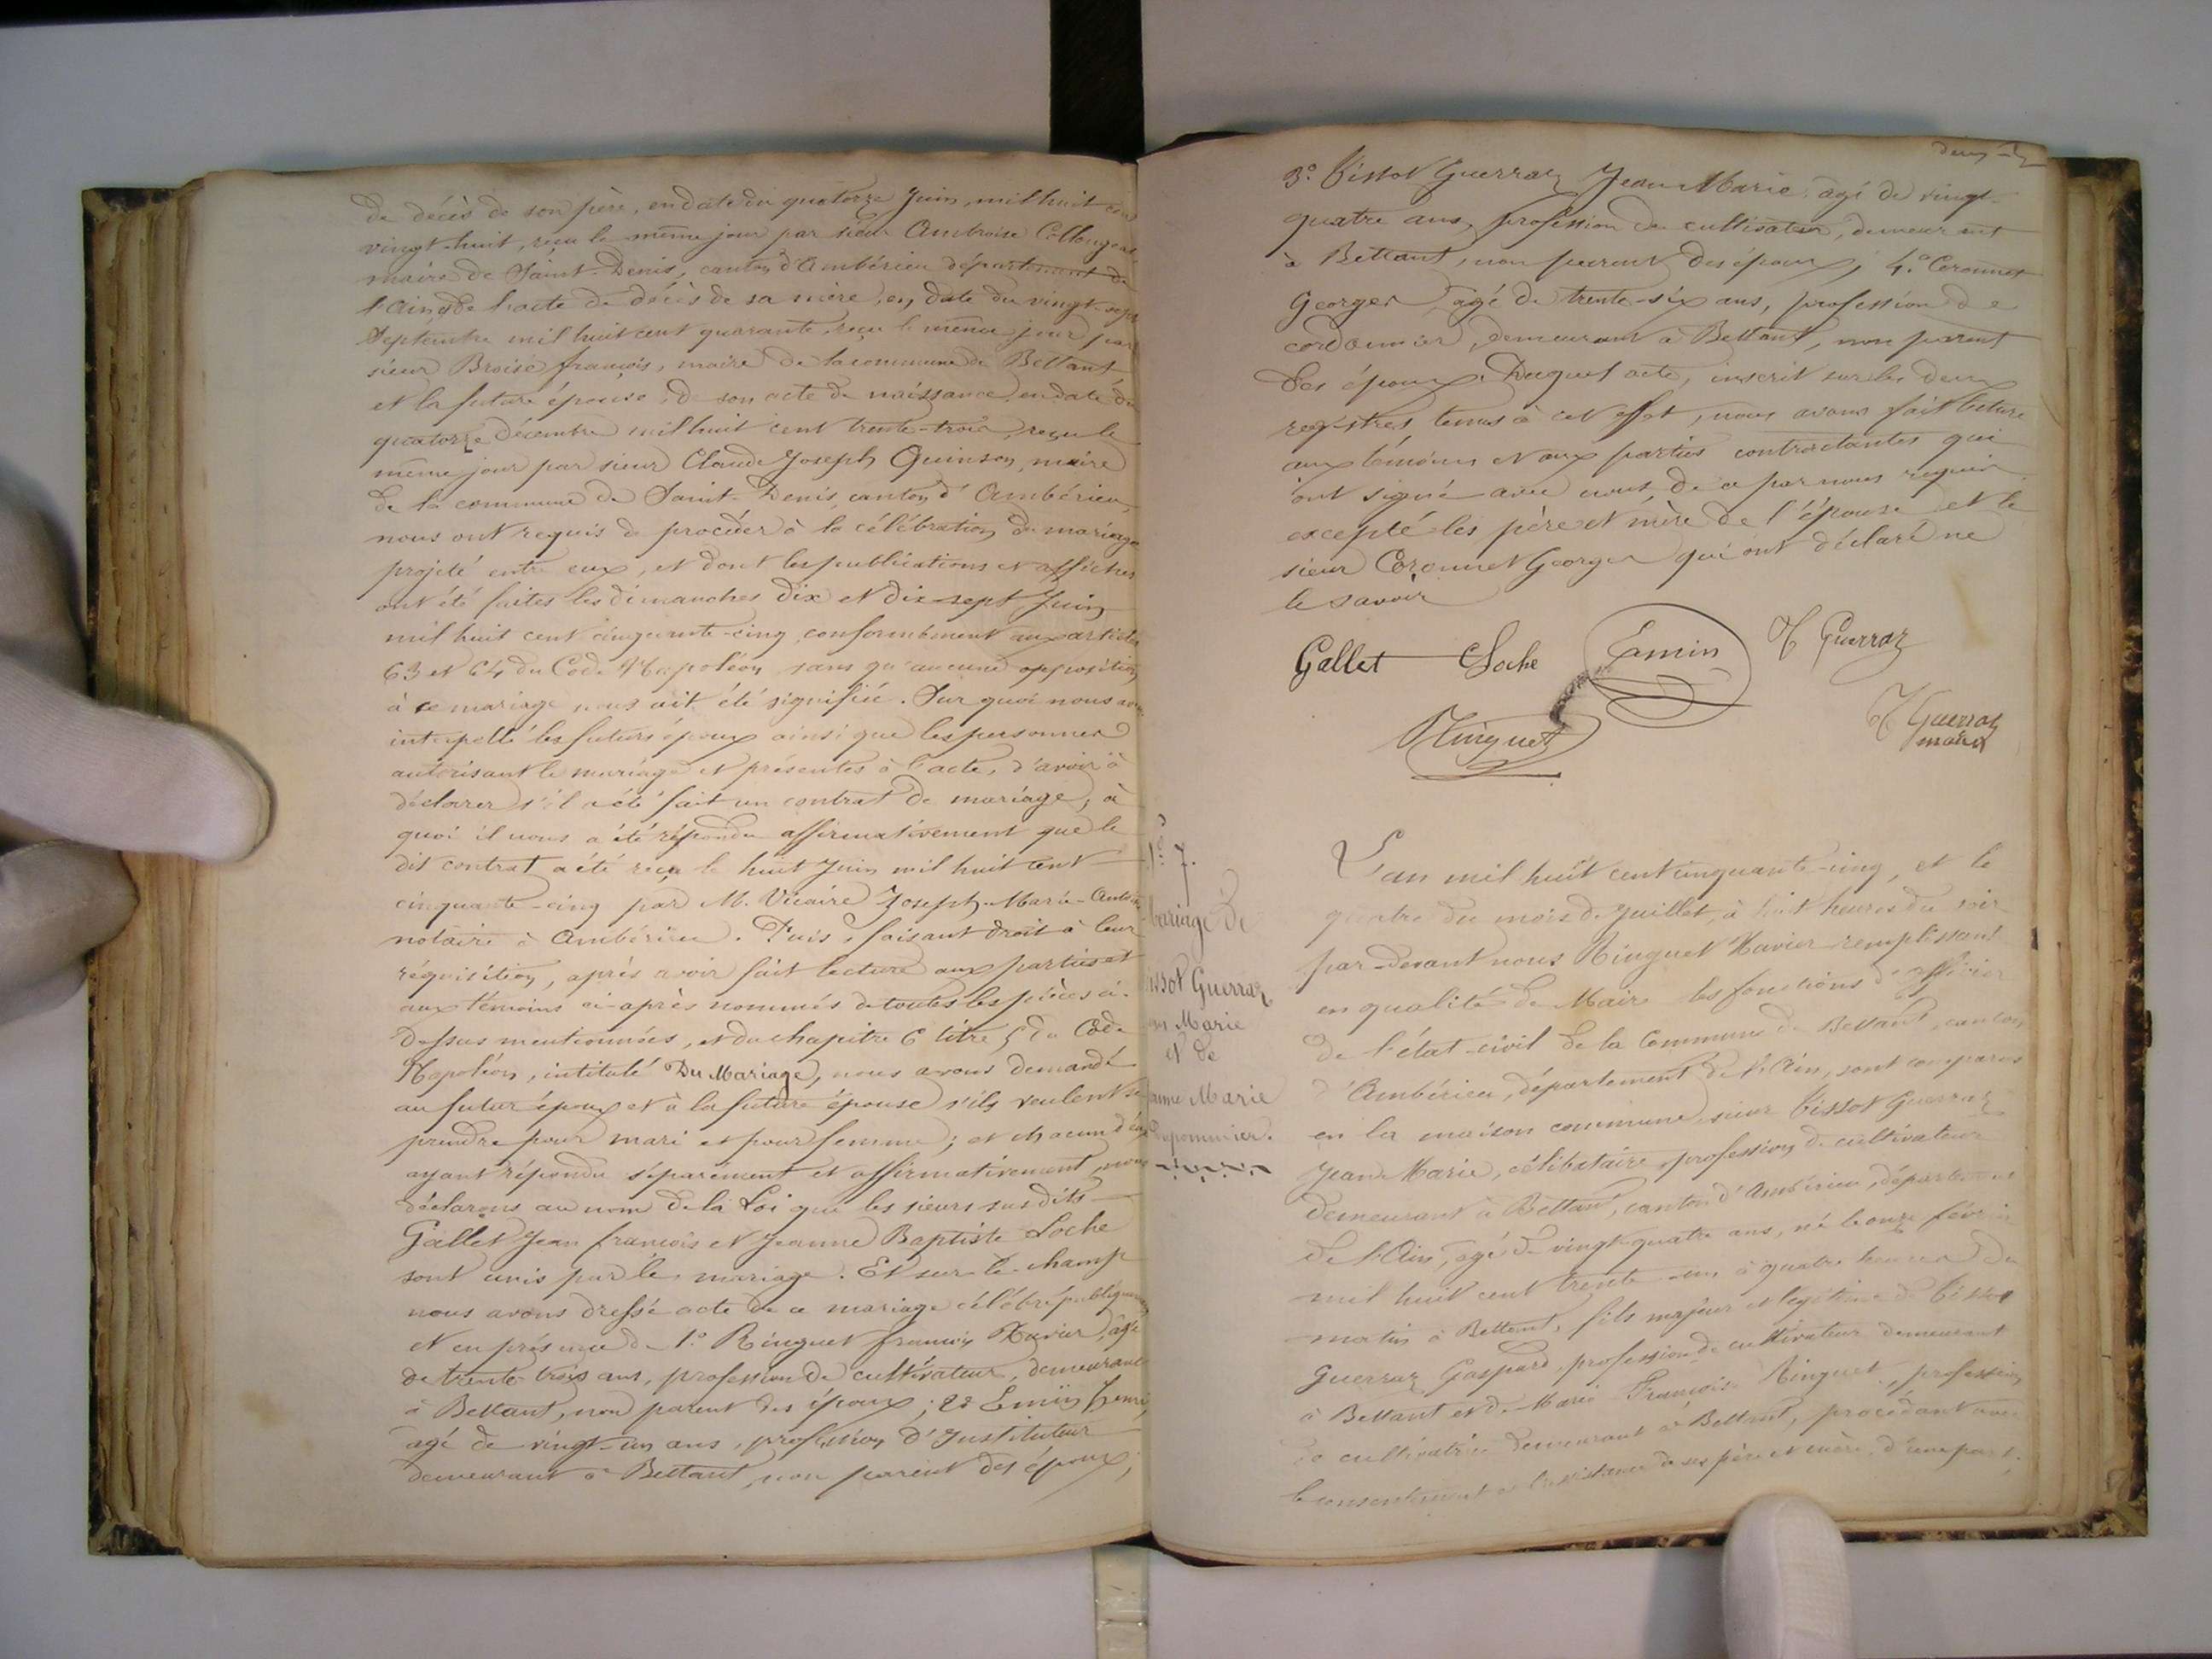 de décès de son père, en date du quatorze Juin, mil huit cent
vingt-huit, reçu le même jour par sieur Ambroise
maire de Saint-Denis, canton d'Ambérieu département de
l'Ain, de l'acte de décès de sa mère, en date du vingt-sept
Septembre mil huit cent quarante, reçu le même jour par
sieur Broise françois, maire de la commune de Bettant
et la future épouse, de son acte de naissance, en date du
quatorze Décembre mil huit cent trente-trois, reçu le
même jour par sieur Claude Joseph Quinson, maire
de la commune de Saint-Denis, canton d'Ambérieu,
nous ont requis de procéder à la célébration du mariage
projeté entre eux, et dont les publications et affiches
ont été faites les dimanches dix et dix-sept Juin
mil huit cent cinquante-cinq, conformément aux articles
63 et 64 du Code Napoléon, sans qu'aucune opposition
à ce mariage nous ait été signifiée. Sur quoi nous avons
interpellé les futurs époux ainsi que les personnes
autorisant le mariage et présentes à l'acte, d'avoir à
déclarer s'il a été fait un contrat de mariage, à
quoi il nous a été répondu affirmativement que le
dit contrat a été reçu le huit Juin mil huit cent
cinquante-cinq par M. Vicaire Joseph-Marie-
notaire à Ambérieu. Puis, faisant droit à leur
réquisition, après avoir fait lecture aux parties et
aux témoins ci-après nommés de toutes les pièces ci-
dessus mentionnées, et du chapitre 6 titre 5 du Code
Napoléon, intitulé Du Mariage, nous avons demandé
au futur époux et à la future épouse s'ils veulent se
prendre pour mari et pour femme; et chacun d'eux
ayant répondu séparément et affirmativement, nous
déclarons au nom de la Loi que les sieurs susdits
Gallet Jean françois et Jeanne Baptiste Loche
sont unis par le mariage. Et sur le champ
nous avons dressé acte de ce mariage célébré publiquement
et en présence de 1.° Ringuet françois Xavier, âgé
de trente-trois ans, profession de cultivateur, demeurant
à Bettant, non parent des époux; 2° Emin henri,
agé de vingt-un ans, profession d'Instituteur
demeurant à Bettant, non parent des époux;
3.° Bissot Guerraz Jean Marie, agé de vingt-
quatre ans, profession de cultivateur, demeurant
à Bettant, non parent des époux; 4.° Coronnet
Georges, agé de trente-six ans, profession de
cordonnier, demeurant à Bettant, non parent
des époux. Duquel acte, inscrit sur les deux
registres tenus à cet effet, nous avons fait lecture
aux témoins et aux parties contractantes qui
ont signé avec nous, de ce par nous requis
excepté les père et mère de l'épouse et le
sieur Coronnet Georges qui ont déclaré ne
le savoir
Gallet Loche Emin Guerraz
Ringuet Guerraz
N° 7.
Mariage de
Bissot Guerraz
Marie
et de
Marie
L'an mil huit cent cinquante-cinq, et le
quatre du mois de Juillet, à huit heures du soir
par-devant nous Ringuet Xavier remplissant
en qualité de Maire les fonctions d'officier
de l'état-civil de la Commune de Bettant, canton
d'Ambérieu, département de l'Ain, sont comparus
en la maison commune, sieur Bissot Guerraz
Jean Marie, célibataire, profession de cultivateur
demeurant à Bettant, canton d'Ambérieu, département
de l'Ain, agé de vingt-quatre ans, né le onze février
mil huit cent trente-un à quatre heures du
matin à Bettant, fils majeur et légitime de Bissot
Guerraz Gaspard, profession de cultivateur demeurant
à Bettant et de Marie Françoise Ringuet, profession
de cultivatrice demeurant à Bettant, procédant avec
le consentement et l'assistance de ses père et mère, d'une part;